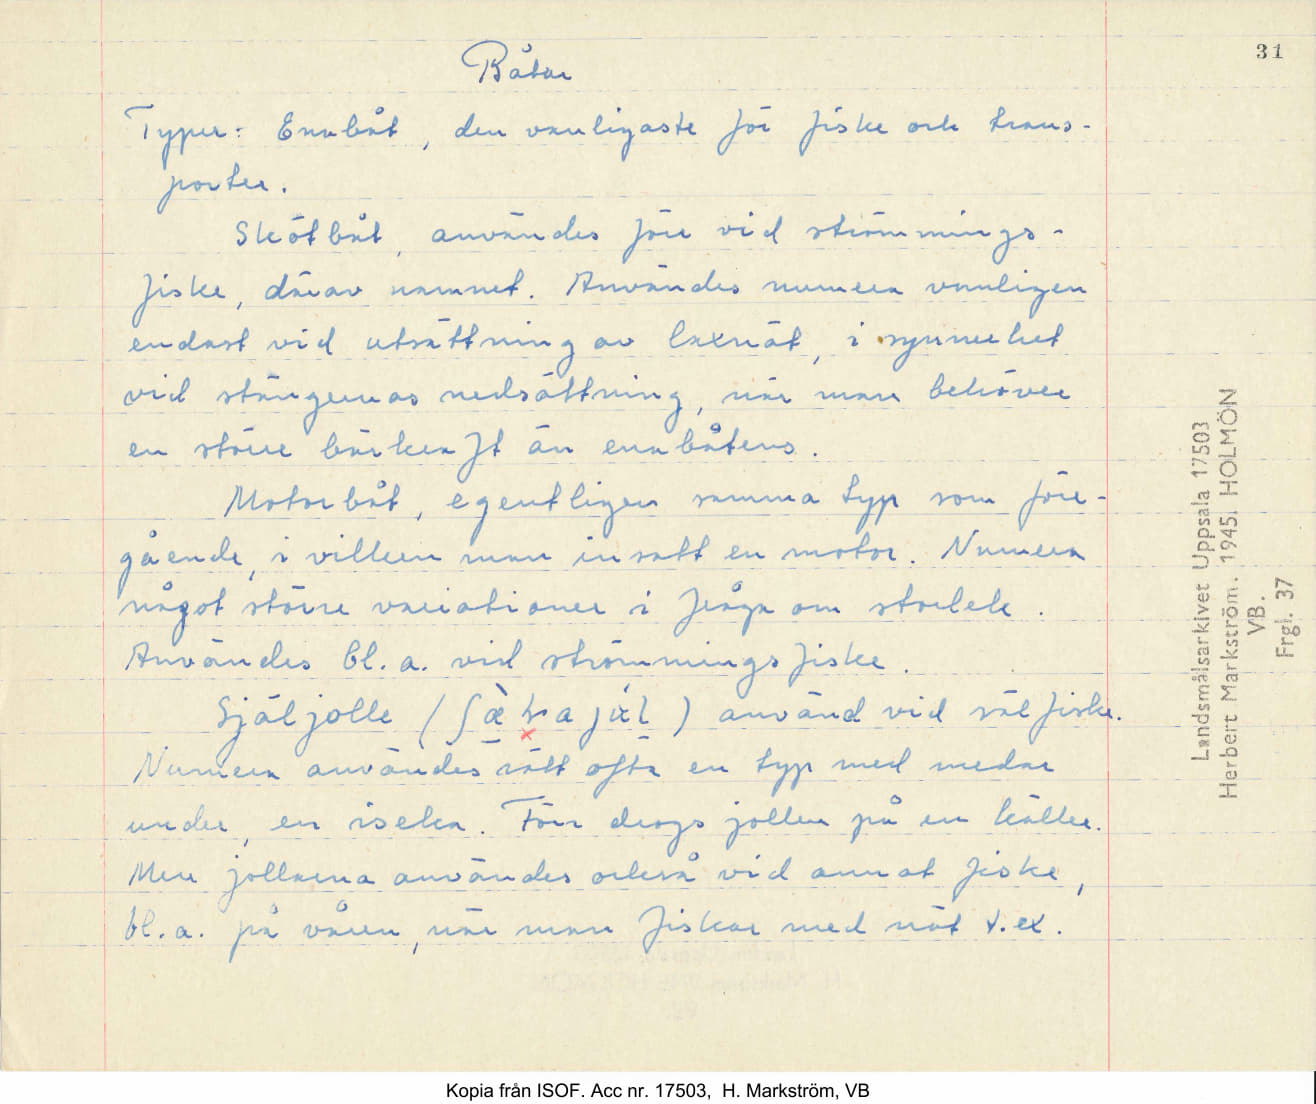 31
Båtar
Typer: Enabåt, den vanligaste för fiske och trans-
porter.
Skötbåt, användes förr vid strömmings-
fiske, därav namnet. Användes numera vanligen
endast vid utsättning av laxnät, i synnerhet
vid stängernas nedsättning, när man behöver
en större bärkraft än enabåtens.
Motorbåt, egentligen samma typ som före-
gående, i vilken man insatt en motor. Numera
något större variationer i fråga om storlek.
Användes bl.a. vid strömmingsfiske.
Själjolle ( ) använd vid sälfiske.
Numera användes rätt ofta en typ med medar
under, en iseka. Förr drogs jollen på en kälke.
Men jollarna användes också vid annat fiske,
bl.a. på våren, när man fiskar med nät t.ex.
Landsmålsarkivet Uppsala 17503
Herbert Markström. 1945. HOLMÖN
VB.
Frgl. 37
Kopia från ISOF. Acc nr. 17503, H. Markström, VB